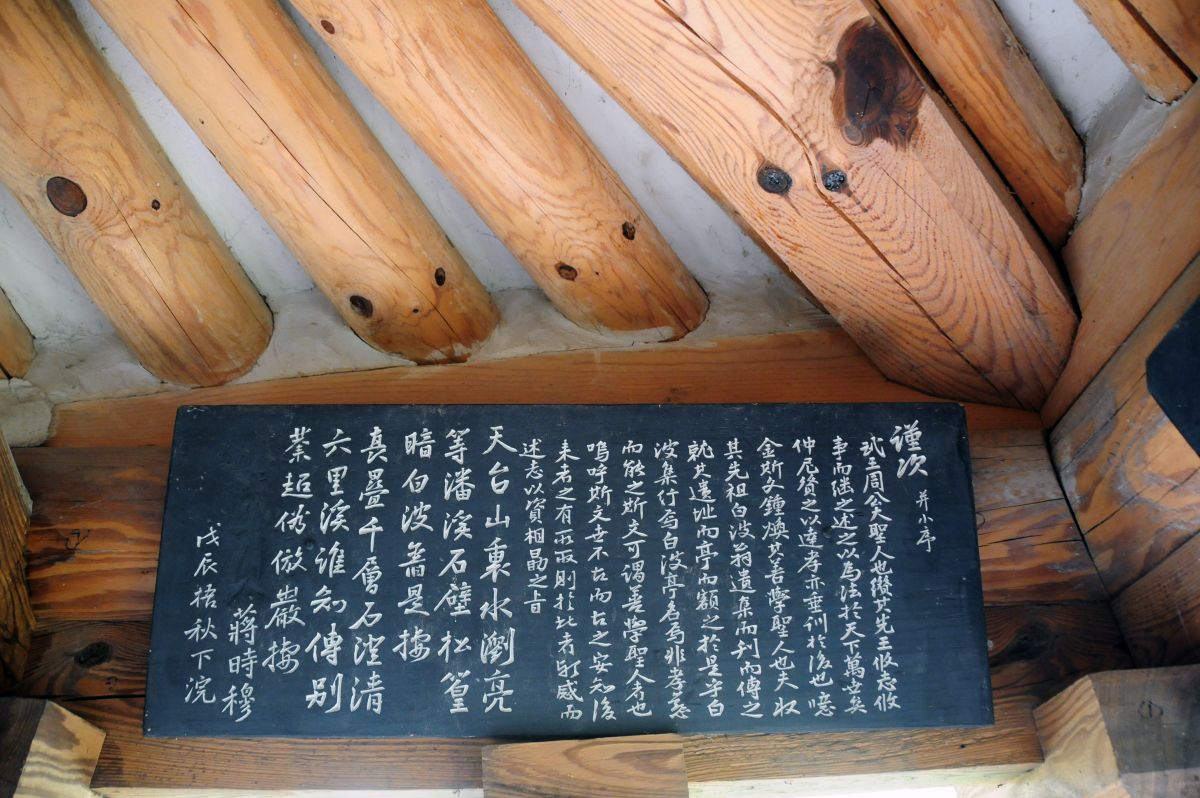 謹次 并小序
武王周公大聖人也纘其先王攸志攸
事而継之述之以為法於天下萬世矣
仲尼贊之以達孝亦垂訓於後也噫
金斯文鍾煥其善學聖人也夫収
其先祖白波翁遺集而刊而傳之
就其遺址而亭而額之於是乎白
波集行焉白波亭名焉非孝
而能之斯文可謂善學聖人者也
嗚呼斯文世不古而古之安知後
来者之有所取則於此者耶感而
述志以資相勗之旨
天台山裏水瀏亮
等潘溪石壁松篁
暗白波是
真疊千層石澄清
六里溪誰知傳別
業超俗倣巖棲
蔣時穆
戊辰梧秋下浣